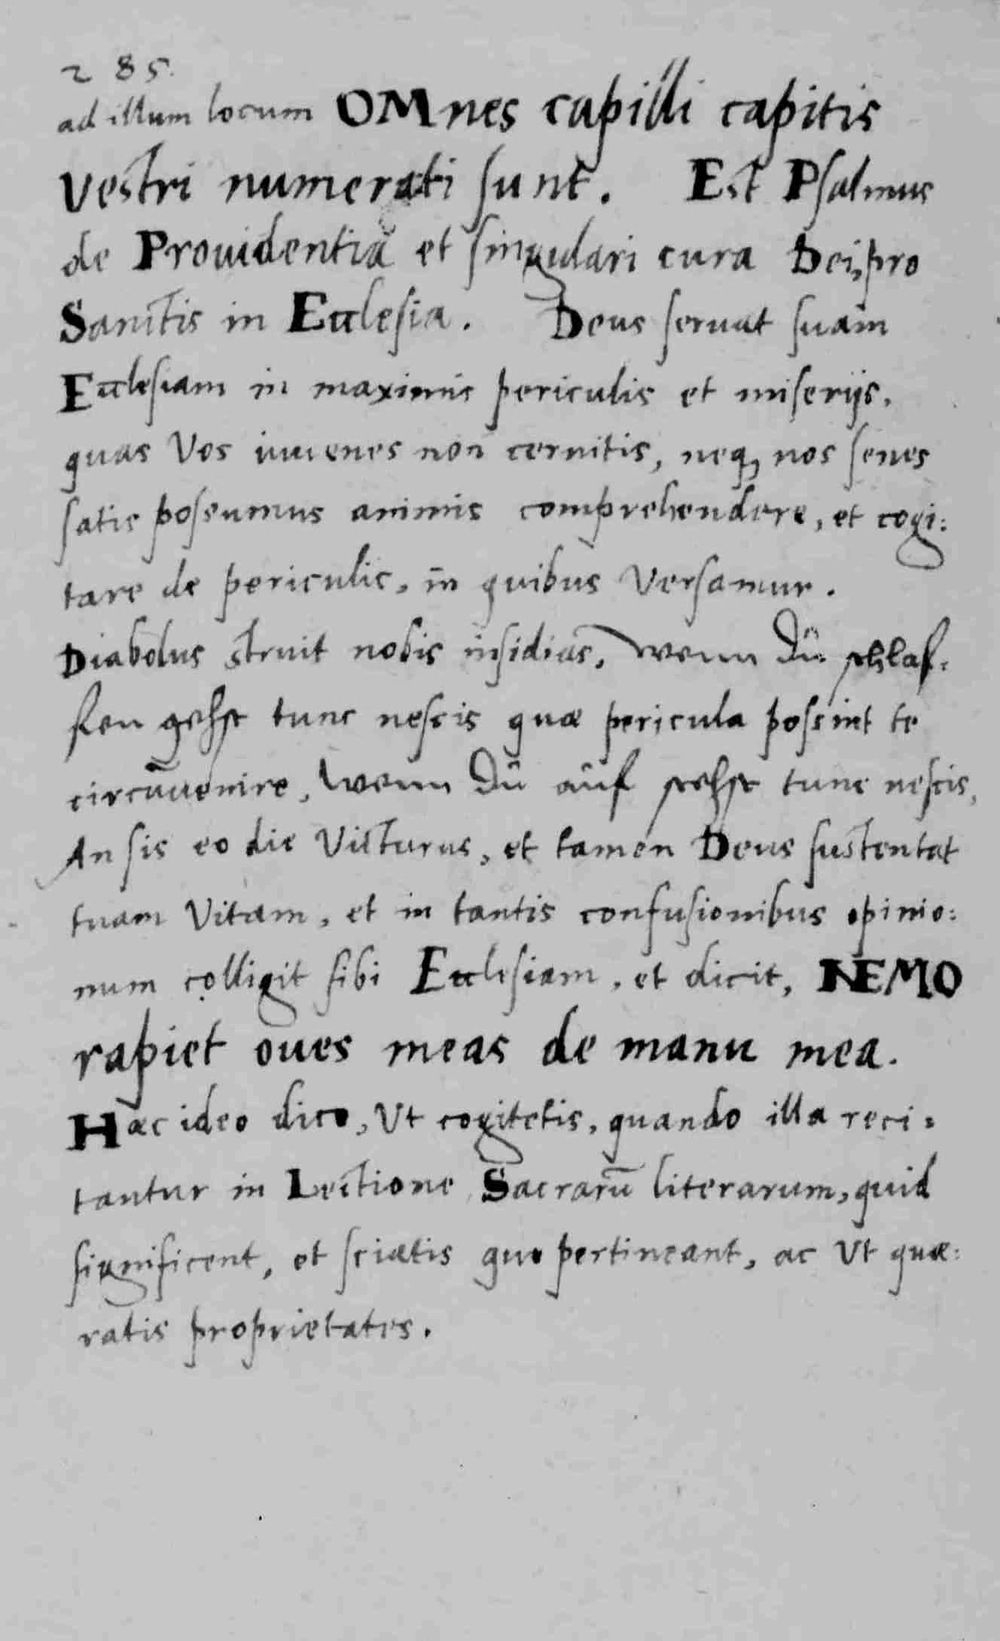 285.
ad illum locum OMnes capilli capitis
Vestri numerati sunt. Est Psalmus
de Prouidentia et singulari cura Dei, pro
Sanctis in Ecclesia. Deus seruat suam
Ecclesiam in maximis periculis et miserijs,
quas Vos iuuenes non cernitis, neq, nos senes
satis possumus animis comprehendere, et cogi:
tare de periculis, in quibus Versamur.
Diabolus struit nobis insidias, wenn dü schlaf:
fen gehst tunc nescis quæ pericula possint te
circūuenire, wenn dü aüf stehst tunc nescis,
An sis eo die Victurus, et tamen Deus sustentat
tuam Vitam, et in tantis confusionibus opinio:
num colligit sibi Ecclesiam, et dicit, NEMO
rapiet oues meas de manu mea.
Hæc ideo dico, Vt cogitetis, quando illa reci:
tantur in Lectione Sacrarū literarum, quid
significent, et sciatis quo pertineant, ac Vt quæ:
ratis proprietates.